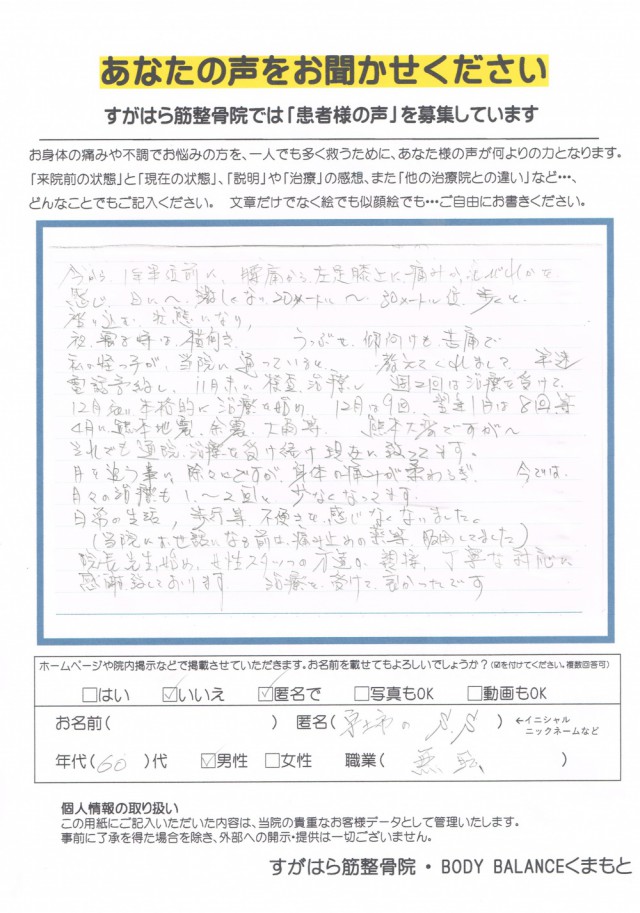 あなたの声をお聞かせください
すがはら筋整骨院では「患者様の声」を募集しています
お身体の痛みや不調でお悩みの方を、一人でも多く救うために、あなた様の声が何よりの力となります。
「来院前の状態」と「現在の状態」、「説明」や「治療」の感想、また「他の治療院との違い」など…、
どんなことでもご記入ください。 文章だけでなく絵でも似顔絵でも…ご自由にお書きください。
今から 1年半位前に、腰痛から左足膝上に、痛み からしびれかを
感じ、日に〜、激しくなり20メートル〜30メートル位 歩くと、
座り込む 状態になり、
夜 寝る時は 横向き、 うつぶせ、仰向けも 苦痛で
私の姪っ子が、当院に通っていると、 教えてくれまして、早速
電話予約し、11月末に 検査、治療、 週2回は治療を受けて、
12月 本格的に 治療を始め、12月は9回、 1月は8回等
4月に熊本地震、余震、大雨等、 熊本大変ですが〜
それでも通院、治療を受け続け 現在に致ってます。
月を追う事に、除々にですが、身体の痛みが柔わらぎ、 今では、
月々の治療も1.〜2回と 少なくなってます
日常の生活、歩行等 不便さを感じなくなりました。
(当院にお世話になる前は、痛み止めの薬等、服用してました)
院長先生始め、女性スタッフの方達の 親接、丁寧な対応に
感謝致しております 治療を受けて、良かったです
ホームページや院内掲示などで掲載させていただきます。お名前を載せてもよろしいでしょうか?(☑を付けてください。複数回答可)
□はい ☑いいえ ☑匿名で □写真もOK □動画もOK
お名前( ) 匿名( の S.S ) ←イニシャル
ニックネームなど
年代(60)代 ☑男性 □女性 職業( 無職 )
個人情報の取り扱い
この用紙にご記入いただいた内容は、当院の貴重なお客様データとして管理いたします。
事前に了承を得た場合を除き、外部への開示・提供は一切ございません。
すがはら筋整骨院 ・ BODY BALANCEくまもと